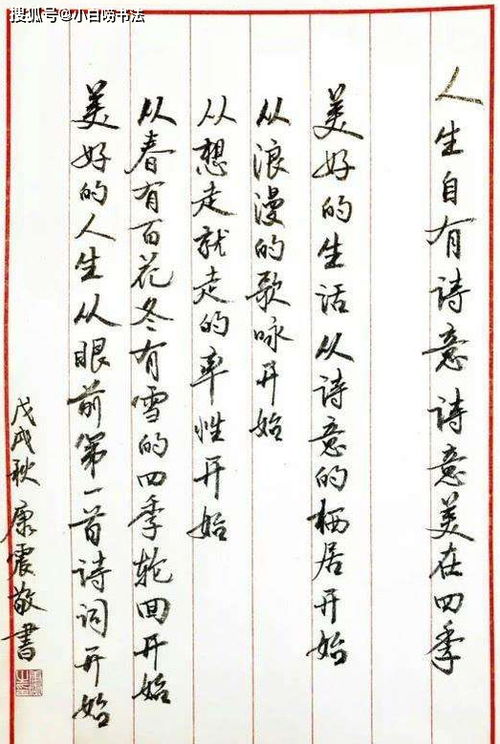 搜狐号@小白唠书法
人生自有诗意诗意美在四季
美好的生活从诗意的栖居开始
从浪漫的歌咏开始
从想走就走的率性开始
从春有百花冬有雪的四季轮回开始
美好的人生从眼前第一首诗词开始
戊戌秋康震敬書